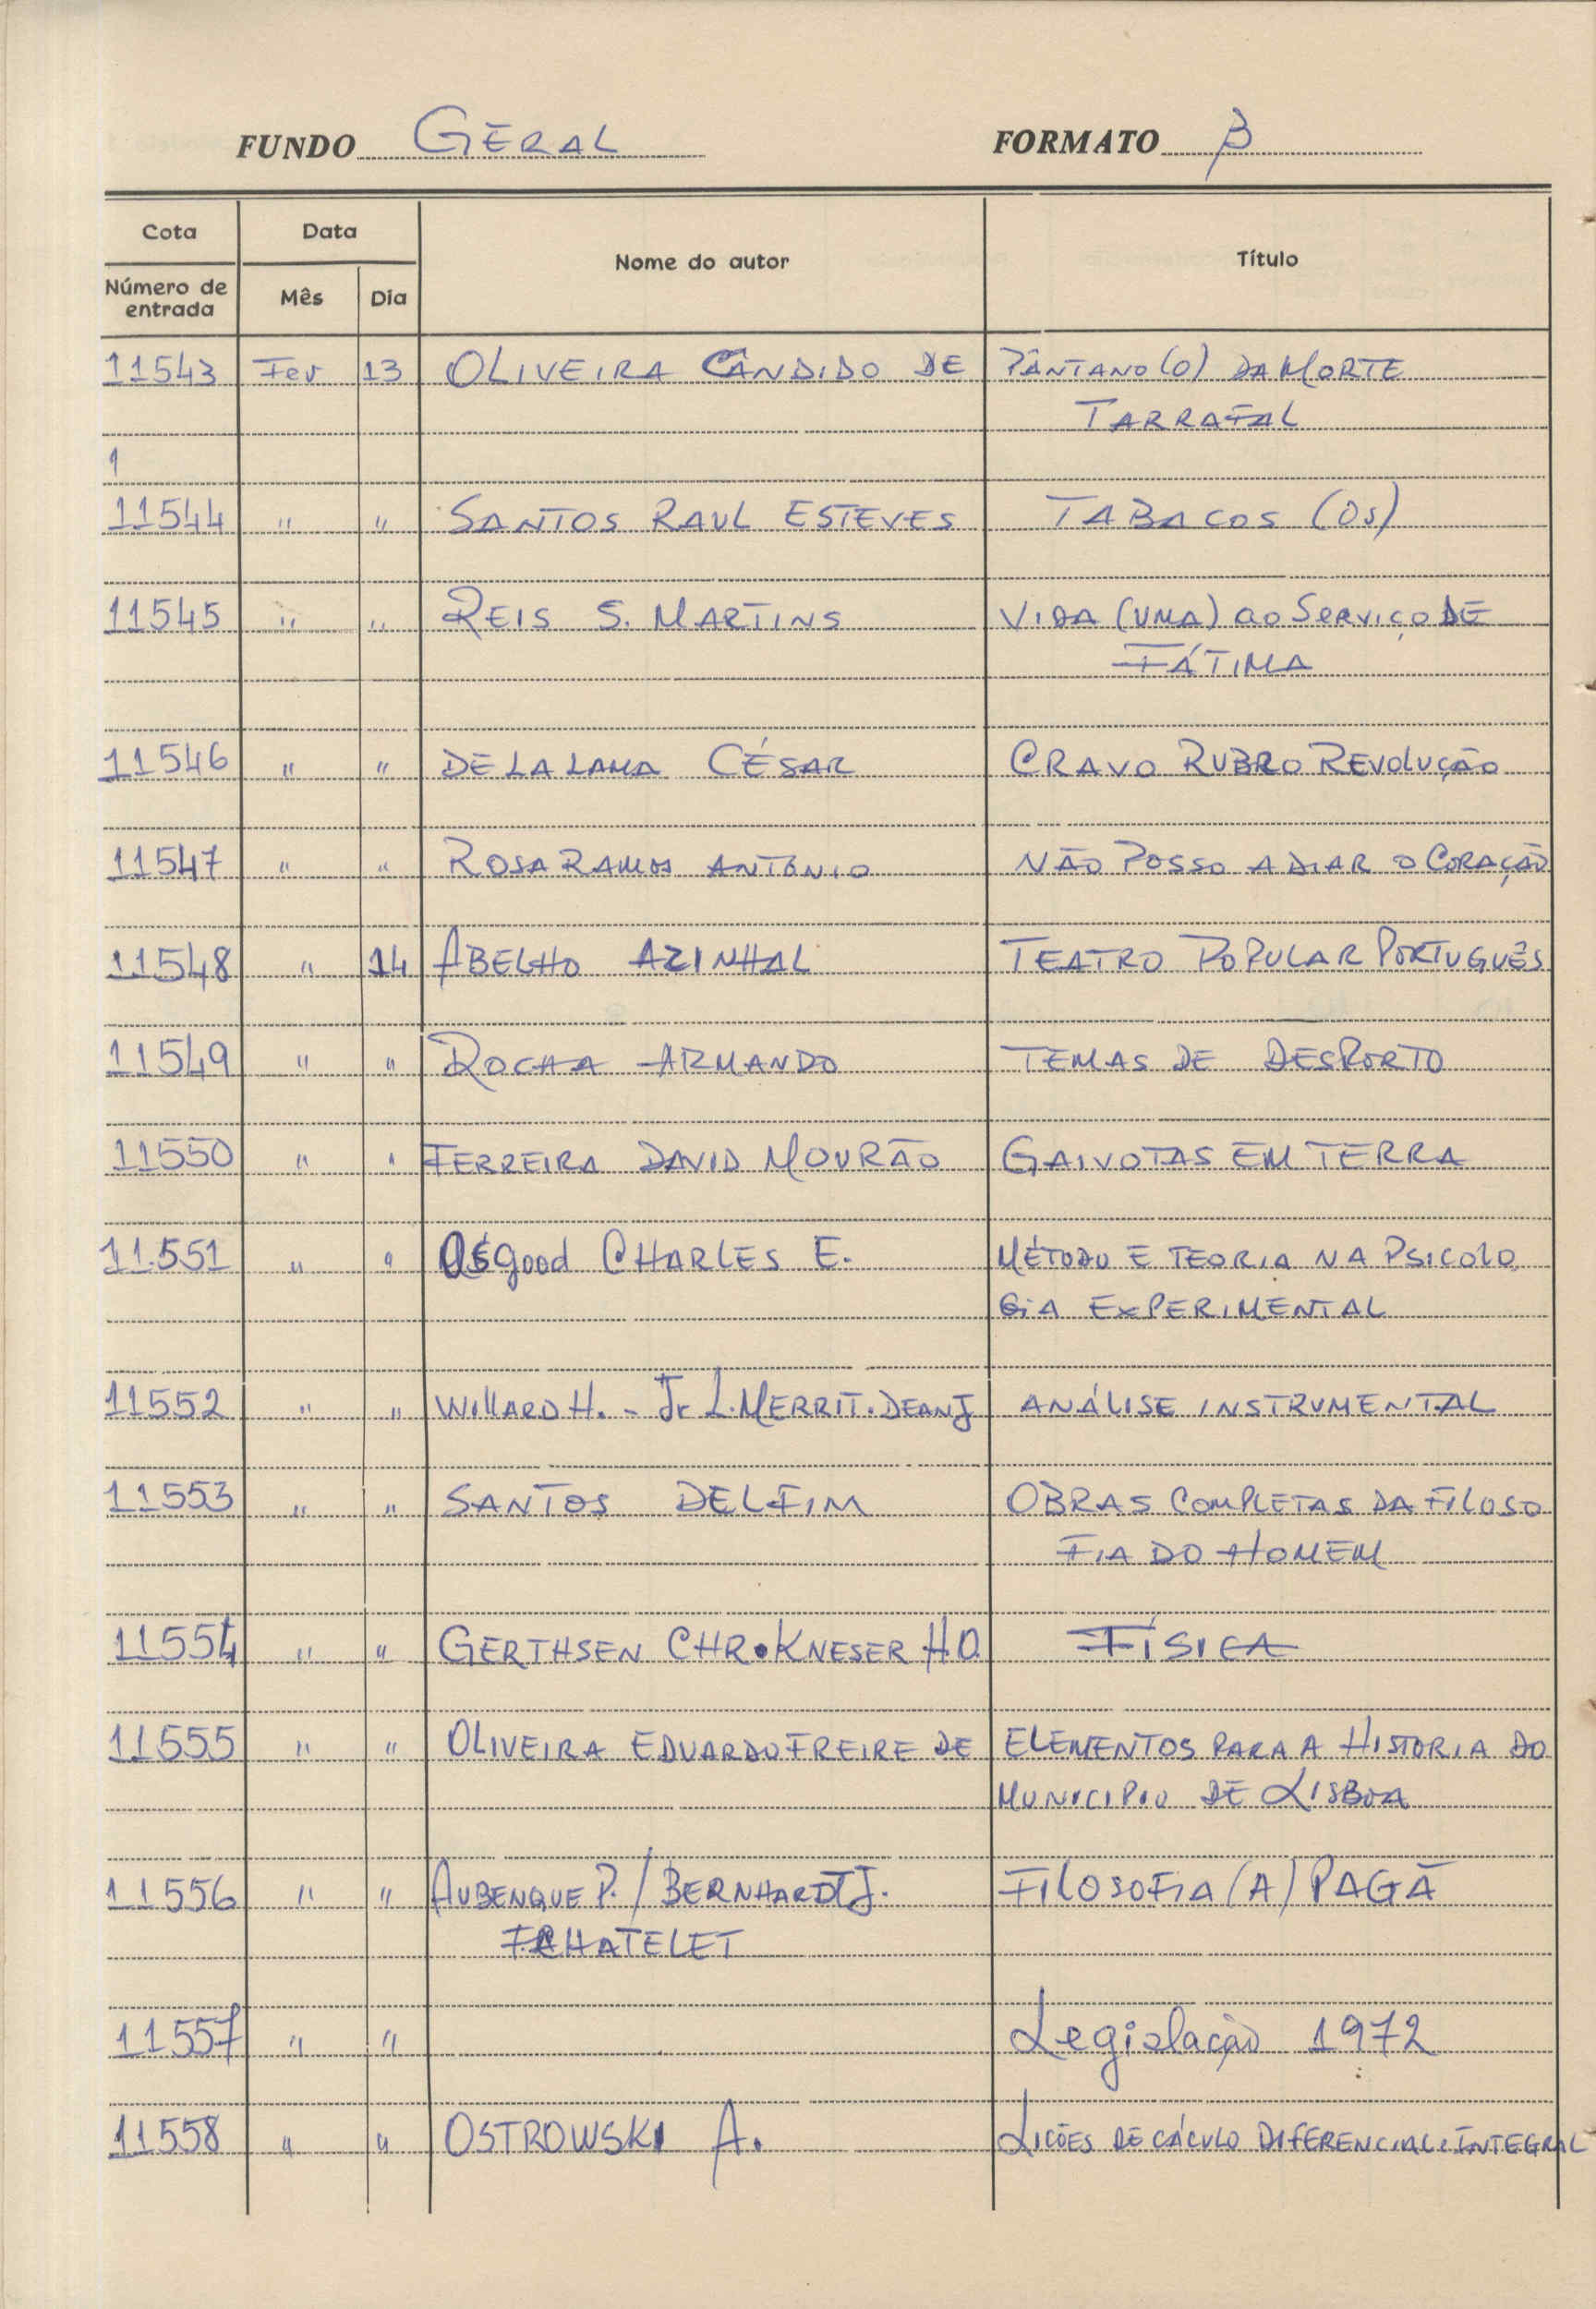 FUNDO GERAL FORMATO β
Cota Data Nome do autor Título
Número de entrada Mês Dia
11543 Fev 13 OLIVEIRA CÂNDIDO DE PÂNTANO (O) DA MORTE
TARRAFAL
1
11544 " " SANTOS RAUL ESTEVES TABACOS (OS)
11545 " " REIS S. MARTINS VIDA (UMA) ao SERVIÇO DE
FÁTIMA
11546 " " DE LA LAMA CÉSAR CRAVO RUBRO REVOLUÇÃO
11547 " " ROSA RAMOS ANTÓNIO NÃO POSSO ADIAR O CORAÇÃO
11548 " 14 ABELHO AZINHAL TEATRO POPULAR PORTUGUÊS
11549 " " ROCHA ARMANDO TEMAS DE DESPORTO
11550 " " FERREIRA DAVID MOURÃO GAIVOTAS EM TERRA
11.551 " " OSgood CHARLES E. MÉTODO E TEORIA NA PSICOLO
GIA EXPERIMENTAL
11552 " " WillARD H. - Jr L. MERRIT. DEAN J ANÁLISE INSTRUMENTAL
11553 " " SANTOS DELFIM OBRAS COMPLETAS DA FILOSO
FIA DO HOMEM
11554 " " GERTHSEN CHR. KNESER H.O. FÍSICA
11555 " " OLIVEIRA EDUARDO FREIRE DE ELEMENTOS PARA A HISTORIA DO
MUNICIPIO DE LISBOA
11556 " " AUBENQUE P. / BERNHARDT J. FILOSOFIA (A) PAGÃ
F. CHATELET
11557 " " Legislação 1972
11558 " " OSTROWSKI A. LIÇÕES DE CÁCULO DIFERENCIAL e INTEGRAL